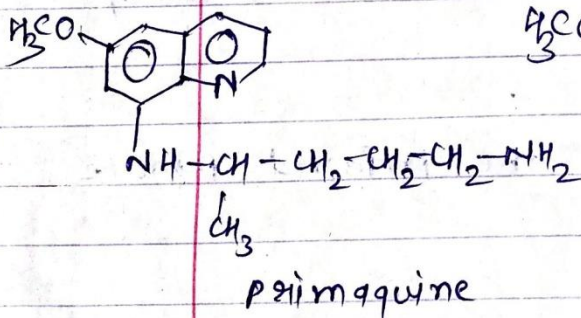 H3CO
H3CO
N
NH-CH-CH2-CH2-CH2-NH2
CH3
primaquine